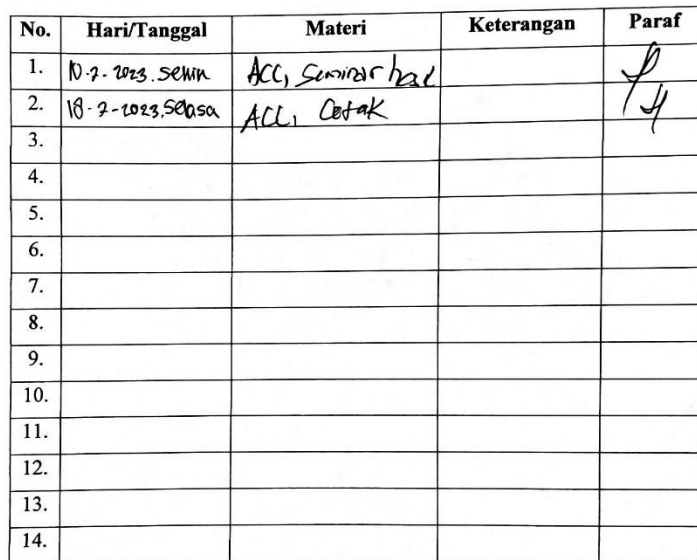 No. Hari/Tanggal Materi Keterangan Paraf
1. 10-7-2023. senin ACC, Seminar hasil
2. 18-7-2023. selasa ACC, Cetak
3.
4.
5.
6.
7.
8.
9.
10.
11.
12.
13.
14.